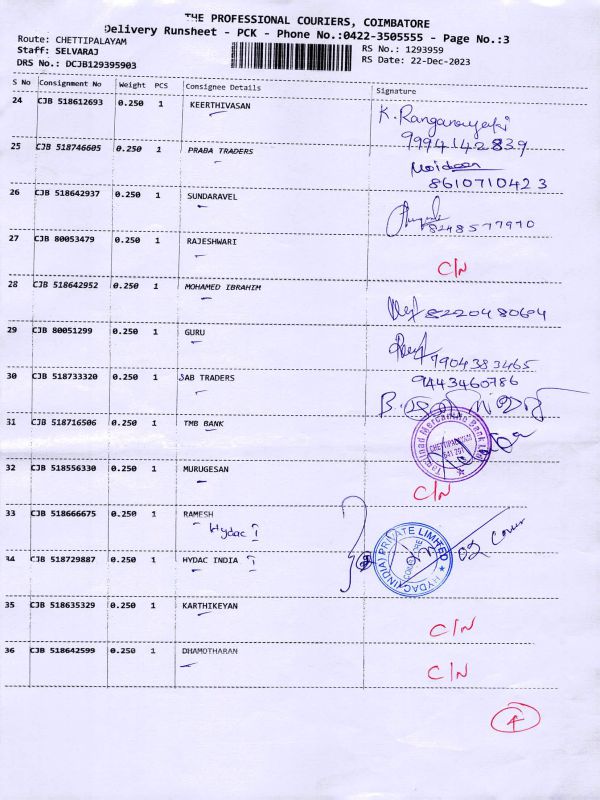 THE PROFESSIONAL COURIERS, COIMBATORE
Delivery Runsheet - PCK - Phone No.:0422-3505555 - Page No.:3
Route: CHETTIPALAYAM
RS No.: 1293959
Staff: SELVARAJ
RS Date: 22-Dec-2023
DRS No.: DCJB129395903
S No Consignment No Weight PCS Consignee Details Signature
24 CJB 518612693 0.250 1 KEERTHIVASAN K. Ranganayaki
9994142839
25 CJB 518746605 0.250 1 PRABA TRADERS
8610710423
26 CJB 518642937 0.250 1 SUNDARAVEL
8248577970
27 CJB 80053479 0.250 1 RAJESHWARI C/N
28 CJB 518642952 0.250 1 MOHAMED IBRAHIM 8220480694
29 CJB 80051299 0.250 1 GURU
7904383465
30 CJB 518733320 0.250 1 JAB TRADERS 9443460786
31 CJB 518716506 0.250 1 TMB BANK
Tamilnad Mercantile Bank Ltd
CHETTIPALAYAM
641 201
32 CJB 518556330 0.250 1 MURUGESAN C/N
33 CJB 518666675 0.250 1 RAMESH
Hydac
34 CJB 518729887 0.250 1 HYDAC INDIA 02 Cover
HYDAC (INDIA) PRIVATE LIMITED
35 CJB 518635329 0.250 1 KARTHIKEYAN C/N
36 CJB 518642599 0.250 1 DHAMOTHARAN C/N
4